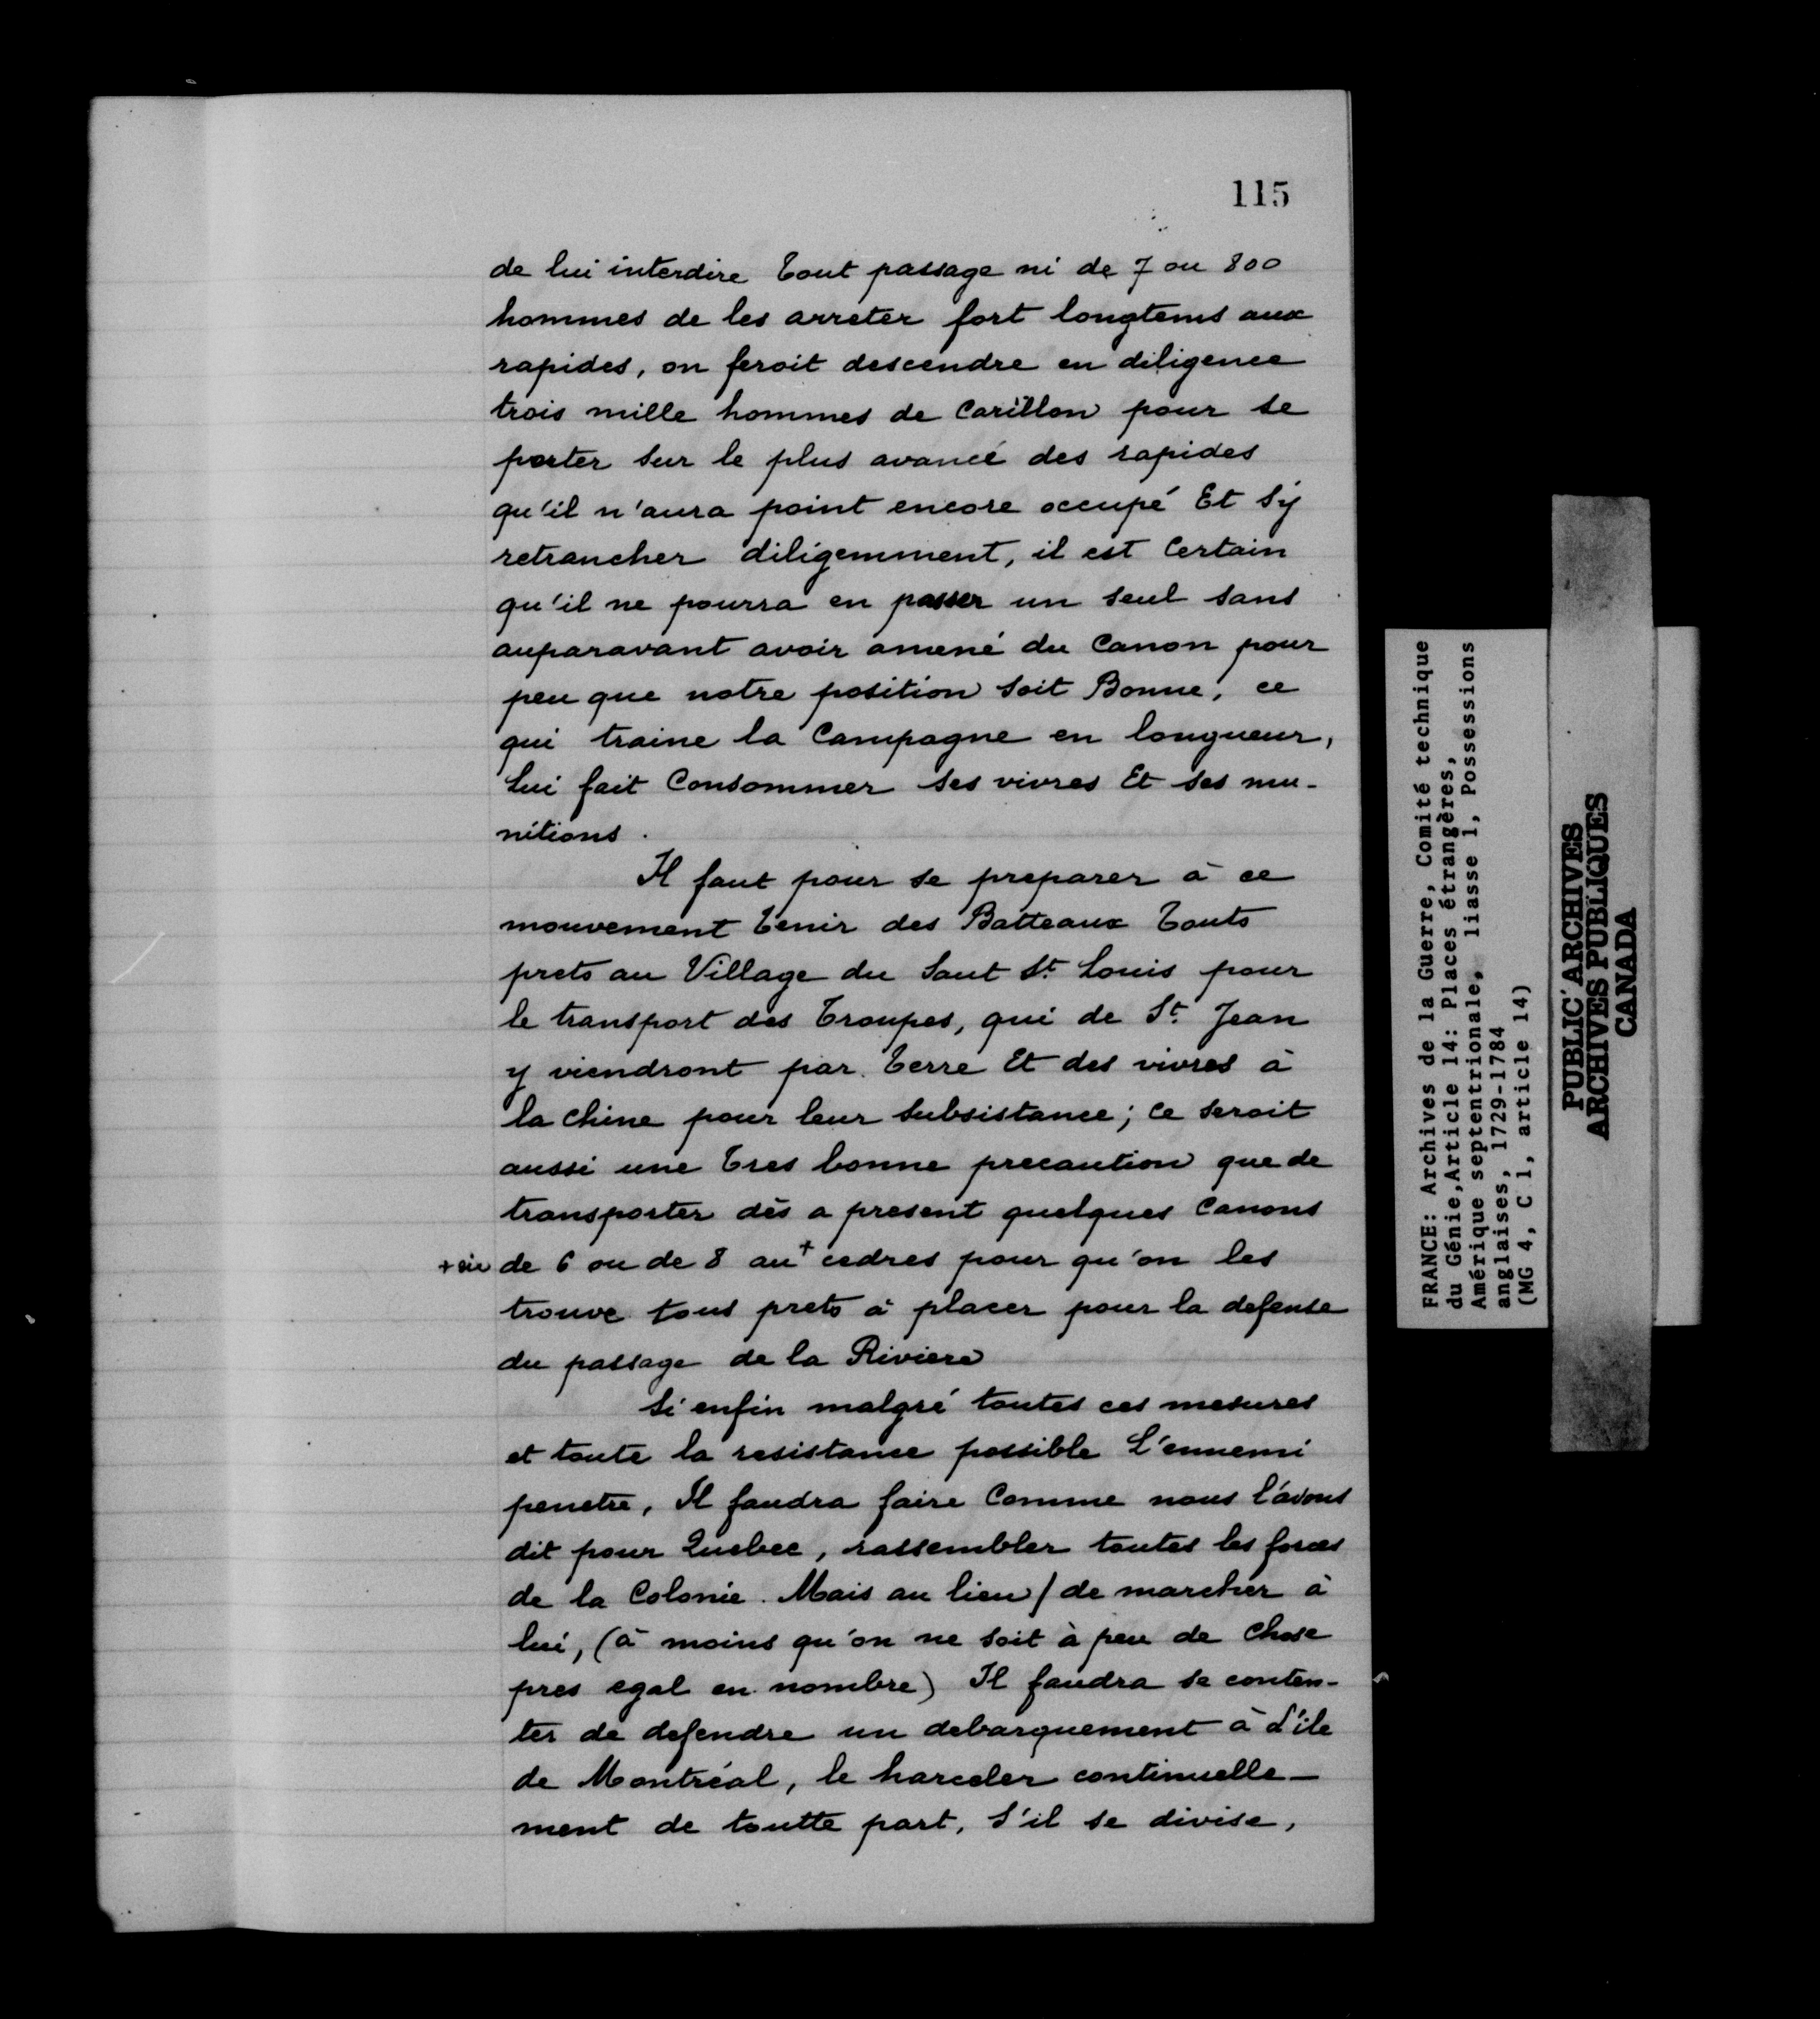 115
de lui interdire tout passage ni de 7 ou 800
hommes de les arreter fort longtems aux
rapides, on feroit descendre en diligence
trois mille hommes de Carillon pour se
porter sur le plus avancé des rapides
qu'il n'aura point encore occupé Et s'y
retrancher diligemment, il est Certain
qu'il ne pourra en passer un seul sans
auparavant avoir amené du Canon pour
peu que notre position soit Bonne, ce
qui traine la Campagne en longueur,
lui fait Consommer ses vivres Et ses mu-
nitions.
Il faut pour se preparer à ce
mouvement tenir des Batteaux touts
prets au Village du Saut St. Louis pour
le transport des troupes, qui de St. Jean
y viendront par terre Et des vivres à
la Chine pour leur subsistance; ce seroit
aussi une tres bonne precaution que de
transporter dès a present quelques Canons
+ sic de 6 ou de 8 au + cedres pour qu'on les
trouve tous prets à placer pour la defense
du passage de la Riviere
Si enfin malgré toutes ces mesures
et toute la resistance possible L'ennemi
penetre, Il faudra faire Comme nous l'avons
dit pour Quebec, rassembler toutes les forces
de la Colonie. Mais au lieu / de marcher à
lui, (à moins qu'on ne soit à peu de Chose
pres egal en nombre) Il faudra se conten-
ter de defendre un debarquement à L'ile
de Montréal, le harceler continuelle-
ment de toutte part, s'il se divise,
FRANCE: Archives de la Guerre, Comité technique
du Génie, Article 14: Places étrangères,
Amérique septentrionale, liasse 1, Possessions
anglaises, 1729-1784
(MG 4, C 1, article 14)
PUBLIC ARCHIVES
ARCHIVES PUBLIQUES
CANADA